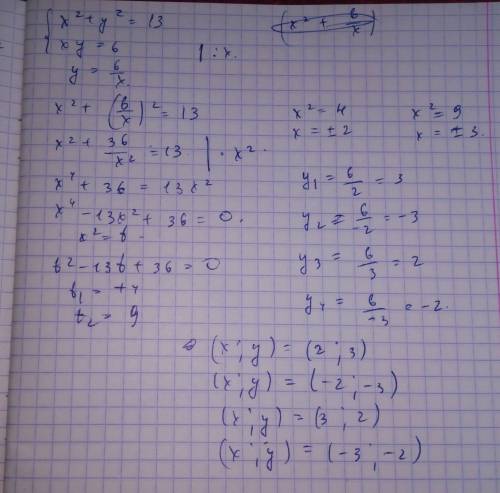 { x² + y² = 13
xy = 6 | : x.
y = 6/x
(x² + 6/x)
x² + (6/x)² = 13
x² + 36/x² = 13 | · x².
x⁴ + 36 = 13x²
x⁴ - 13x² + 36 = 0.
x² = t
t² - 13t + 36 = 0
t₁ = +4
t₂ = 9
x² = 4
x = ± 2
x² = 9
x = ± 3.
y₁ = 6/2 = 3
y₂ = 6/-2 = -3
y₃ = 6/3 = 2
y₄ = 6/-3 = -2.
(x ; y) = (2 ; 3)
(x ; y) = (-2 ; -3)
(x ; y) = (3 ; 2)
(x ; y) = (-3 ; -2)